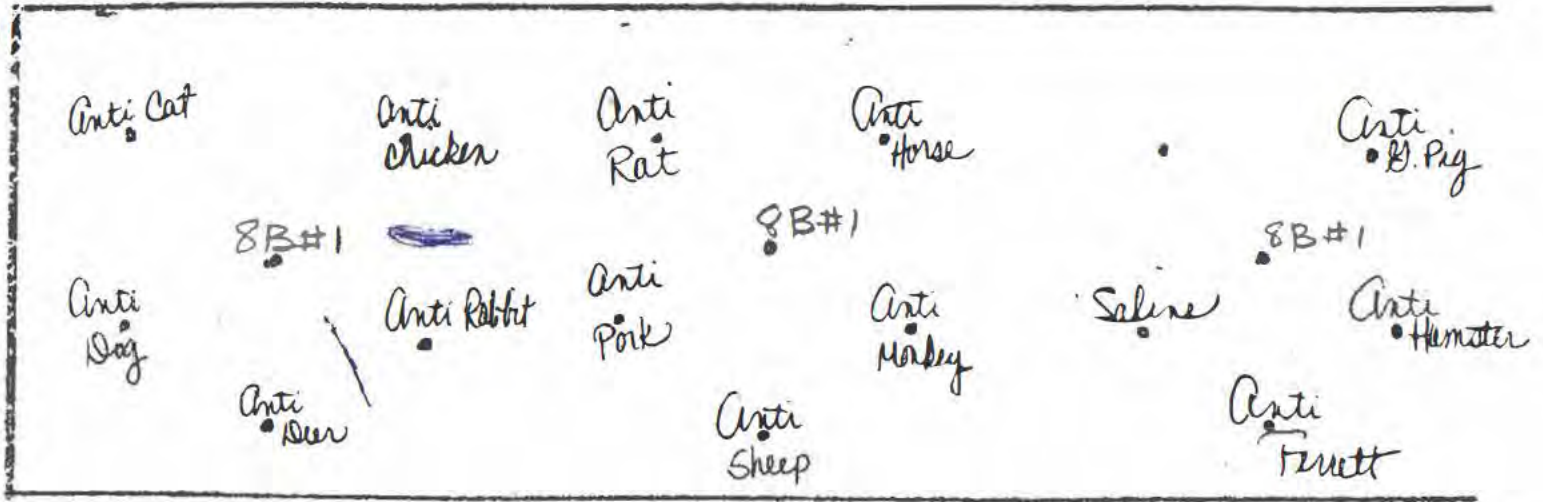 Anti Cat
Anti
Chicken
Anti
Rat
Anti
Horse
Anti
G. Pig
8B#1
8B#1
8B#1
Anti
Dog
Anti Rabbit
Anti
Pork
Anti
Monkey
Saline
Anti
Hamster
Anti
Deer
Anti
Sheep
Anti
Ferrett